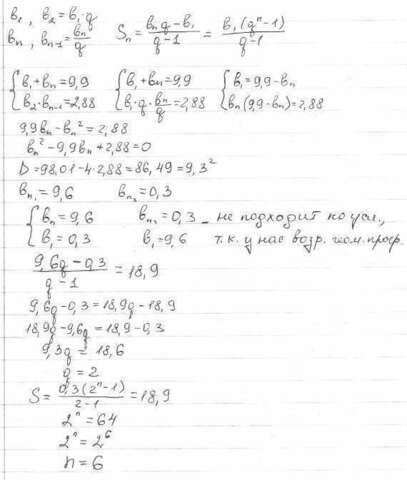 b₁, b₂=b₁·q
bₙ, bₙ₋₁=bₙ/q Sₙ=(bₙq-b₁)/(q-1)=b₁(qⁿ-1)/(q-1)
{b₁+bₙ=9,9 {b₁+bₙ=9,9 {b₁=9,9-bₙ
{b₂·bₙ₋₁=2,88 {b₁·q·bₙ/q=2,88 {bₙ(9,9-bₙ)=2,88
9,9bₙ-bₙ²=2,88
bₙ²-9,9bₙ+2,88=0
D=98,01-4·2,88=86,49=9,3²
bₙ₁=9,6 bₙ₂=0,3
{bₙ=9,6 bₙ₂=0,3 - не подходит по усл.,
{b₁=0,3 b₁=9,6 т.к. у нас возр. геом. прогр.
(9,6q-0,3)/(q-1)=18,9
9,6q-0,3=18,9q-18,9
18,9q-9,6q=18,9-0,3
9,3q=18,6
q=2
S=0,3(2ⁿ-1)/(2-1)=18,9
2ⁿ=64
2ⁿ=2⁶
n=6